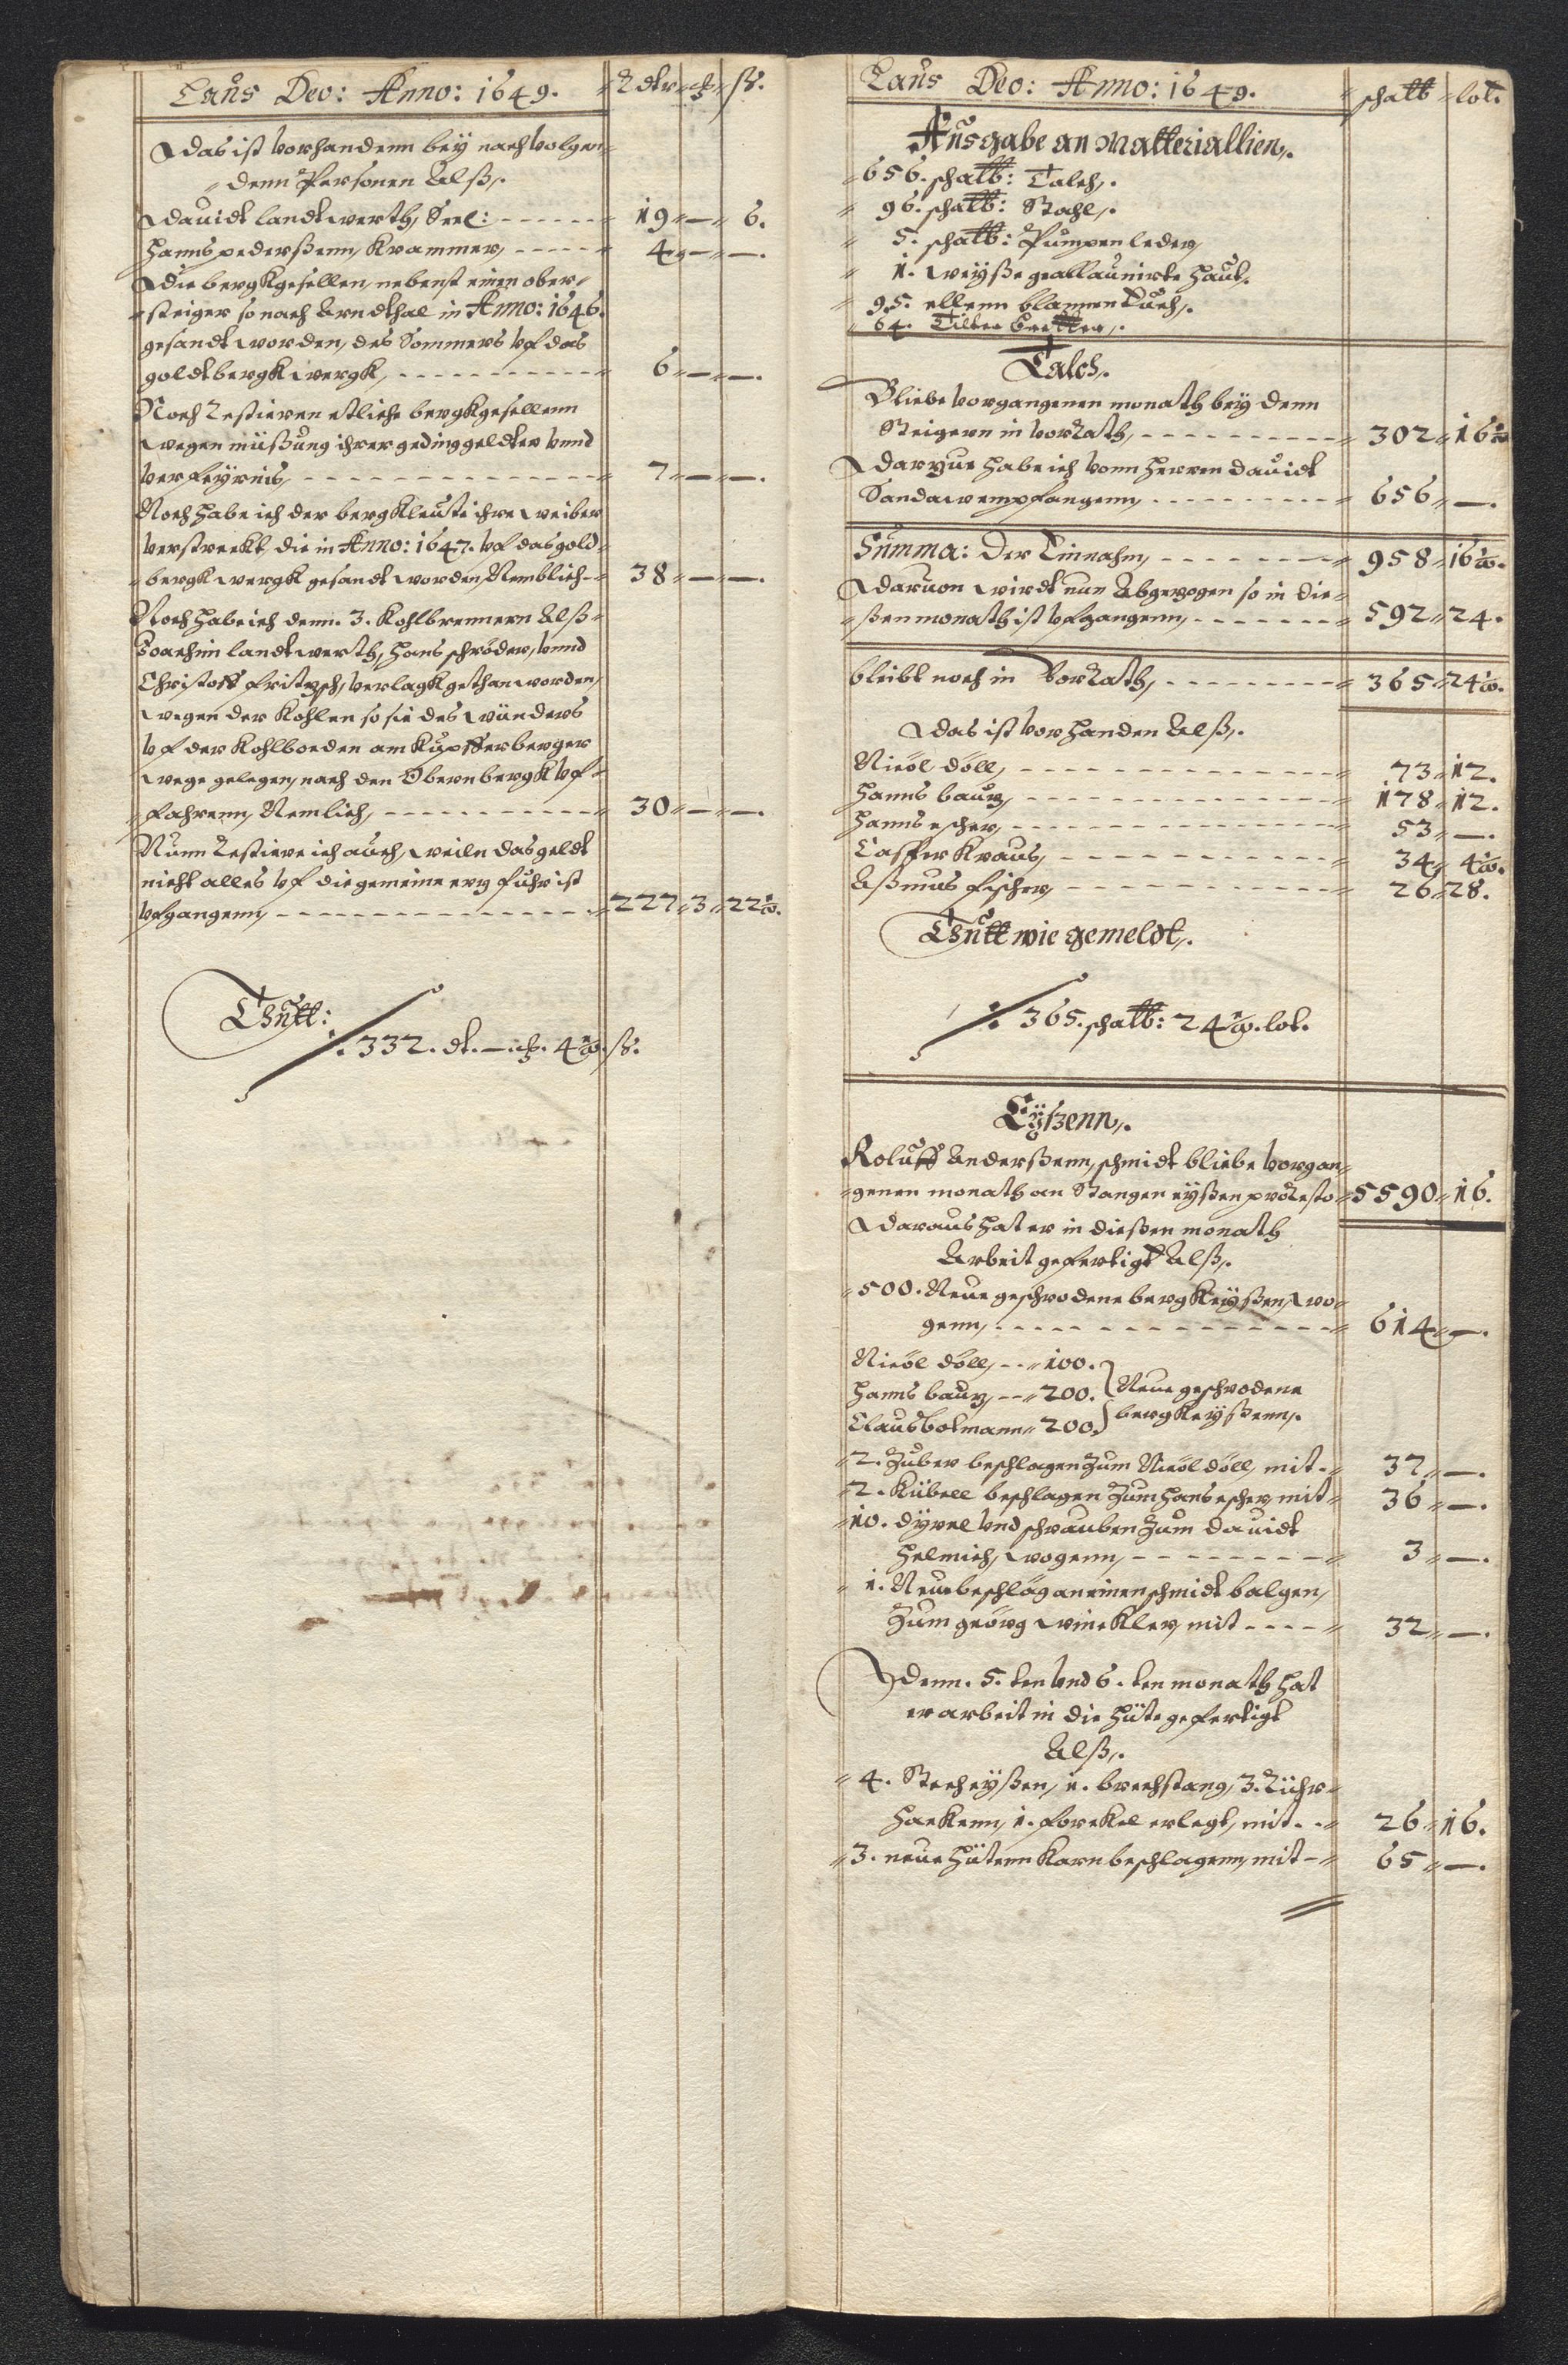 Laus Deo: Anno: 1649. Rdtr ß.
Das ist vorhandenn beÿ nachvolgen=
denn Personen Alß,.
Dauidt landtwerth, Seel: - - - 19 — 6.
Hanns pederßenn, Krammer, - - - 4 — —.
Die bergkgesellen, nebenst einen ober=
steiger so nach Arndthal in Anno: 1646.
gesandt worden, des Sommers vf das
goldtbergkwergk, - - - 6 — —.
Noch Restieren etliche bergkgesellenn
wegen müßung ihrer gedinggeldter vnnd
verfeÿrnis, - - - 7 — —.
Noch habe ich der bergkleuste ihre weiber
verstreckt, die in Anno: 1647. vf das gold=
bergkwergk gesandt worden, Nemblich - 38 — —.
Noch habe ich denn. 3. Kohlbrennern Alß
Joachim landtwerth, Hans schröder, vnnd
Christoff fritzsch, verlagk gethan worden,
wegen der Kohlen so sie des wünders
vf der Kohlboeden am Kupfferberger
wege gelegen, nach den Obernbergk vf=
fahrenn, Nemlich, - - - 30 — —.
Nunn Restiere ich auch, weiln das geldt
nicht alles vf die gemeine ertz fuhr ist
vfgangenn, - - - 227 3 22½.
Thutt:
332. dt. — 4½. ß.
Laus Deo: Anno: 1649. schalb lot.
Ausgabe an Matteriallien,.
656. schalb: Talch,.
96. schalb: Stahl,.
5. schalb: Pumpen leder,
1. weÿße geallaunirte Haut.
95. ellenn blannen Tuch,.
64. Tilten Bretter,.
Talch,.
Bliebe vorgangenen monath beÿ denn
Steigern in vorRath, - - - 302 16½
Darzue habe ich vonn Herren Dauidt
Sandaw empfangenn, - - - 656 —.
Summa: Der Einnahm, - - - 958 16½.
Daruon wirdt nun Abgezogen so in die=
ßen monath ist vfgangenn, - - - 592 24.
bleibt noch in VorRath, - - - 365 24½.
Das ist vorhanden Alß,.
Nicöl döll, - - - 73 12.
Hanns baur, - - - 178 12.
Hanns escher, - - - 53 —.
Casper Kraus, - - - 34 4½.
Aßmus fischer, - - - 26 28.
Thutt wie gemeldt,.
365. schalb: 24½. lot.
Eÿszenn,.
Roluff Anderßenn, schmidt bliebe vorgan=
genen monath an Stangen eÿßen pro Resto 5590 16.
Daraus hat er in dießen monath
Arbeit gefertigt Alß,.
500. Neue geschrodene bergkeÿßen, wo=
genn, - - - 614 —.
Nicöl döll, - - 100.
Hanns baur, - - 200. Neue geschrodene
Claus bolmann 200. bergkeÿßenn,.
2. Zuber beschlagen Zum Nicöl döll, mit - 37 —.
2. Kübell beschlagen Zum Hans escher, mit 36 —.
10. dÿrel vnd schrauben Zum Dauidt
Helmich, wogenn, - - - 3 —.
1. Neue beschläg an einen schmidt balgen,
Zum geörg winckler, mit - - - 32 —.
Denn. 5. ten vnd 6. ten monath hat
er arbeit in die Hüte gefertigt
Alß,.
4. Stecheÿßen, 1. brechstang, 3. Rühr=
hackenn, 1. forckel erlegt, mit - - 26 16.
3. neue Hütenn Karn beschlagenn, mit - 65 —.